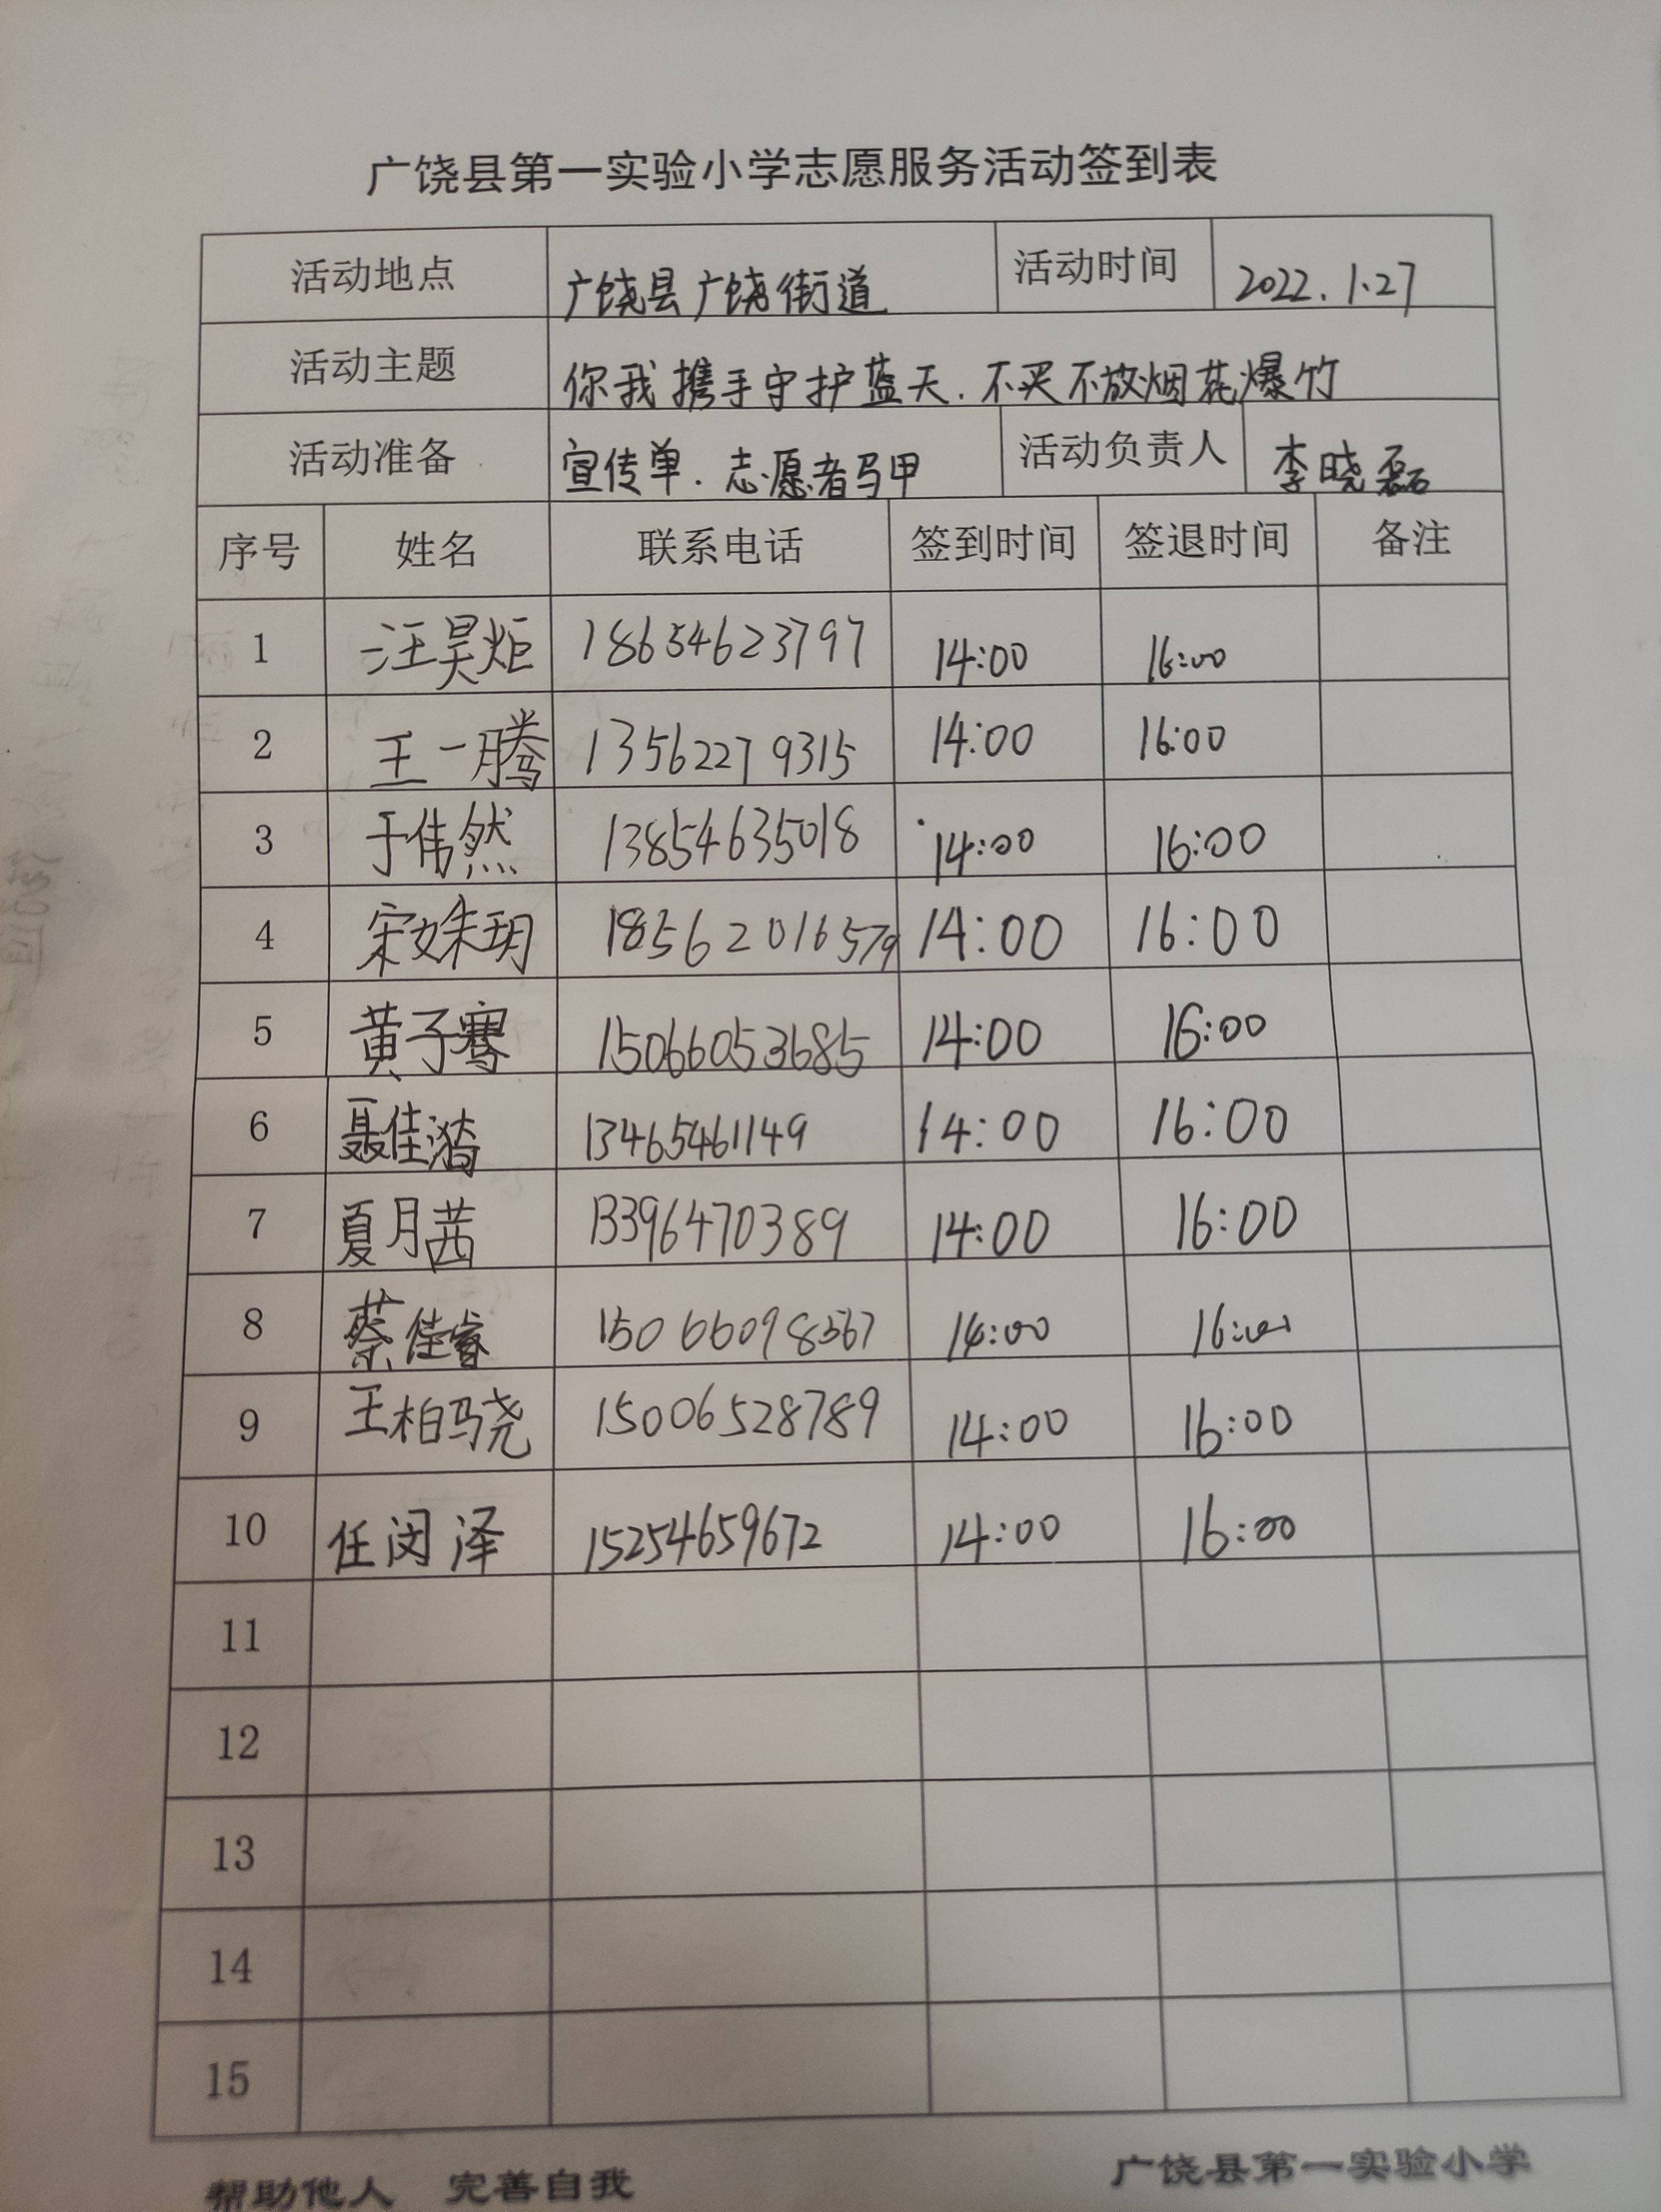 广饶县第一实验小学志愿服务活动签到表
活动地点 广饶县广饶街道 活动时间 2022.1.27
活动主题 你我携手守护蓝天.不买不放烟花爆竹
活动准备 宣传单.志愿者马甲 活动负责人 李晓磊
序号 姓名 联系电话 签到时间 签退时间 备注
1 汪昊炬 18654623797 14:00 16:00
2 王一腾 13562279315 14:00 16:00
3 于伟然 13854635018 14:00 16:00
4 宋姝玥 18562016579 14:00 16:00
5 黄子骞 15066053685 14:00 16:00
6 聂佳漪 13465461149 14:00 16:00
7 夏月茜 13396470389 14:00 16:00
8 蔡佳睿 15066098567 14:00 16:00
9 王柏骁 15006528789 14:00 16:00
10 任闵泽 15254659672 14:00 16:00
11
12
13
14
15
帮助他人 完善自我 广饶县第一实验小学